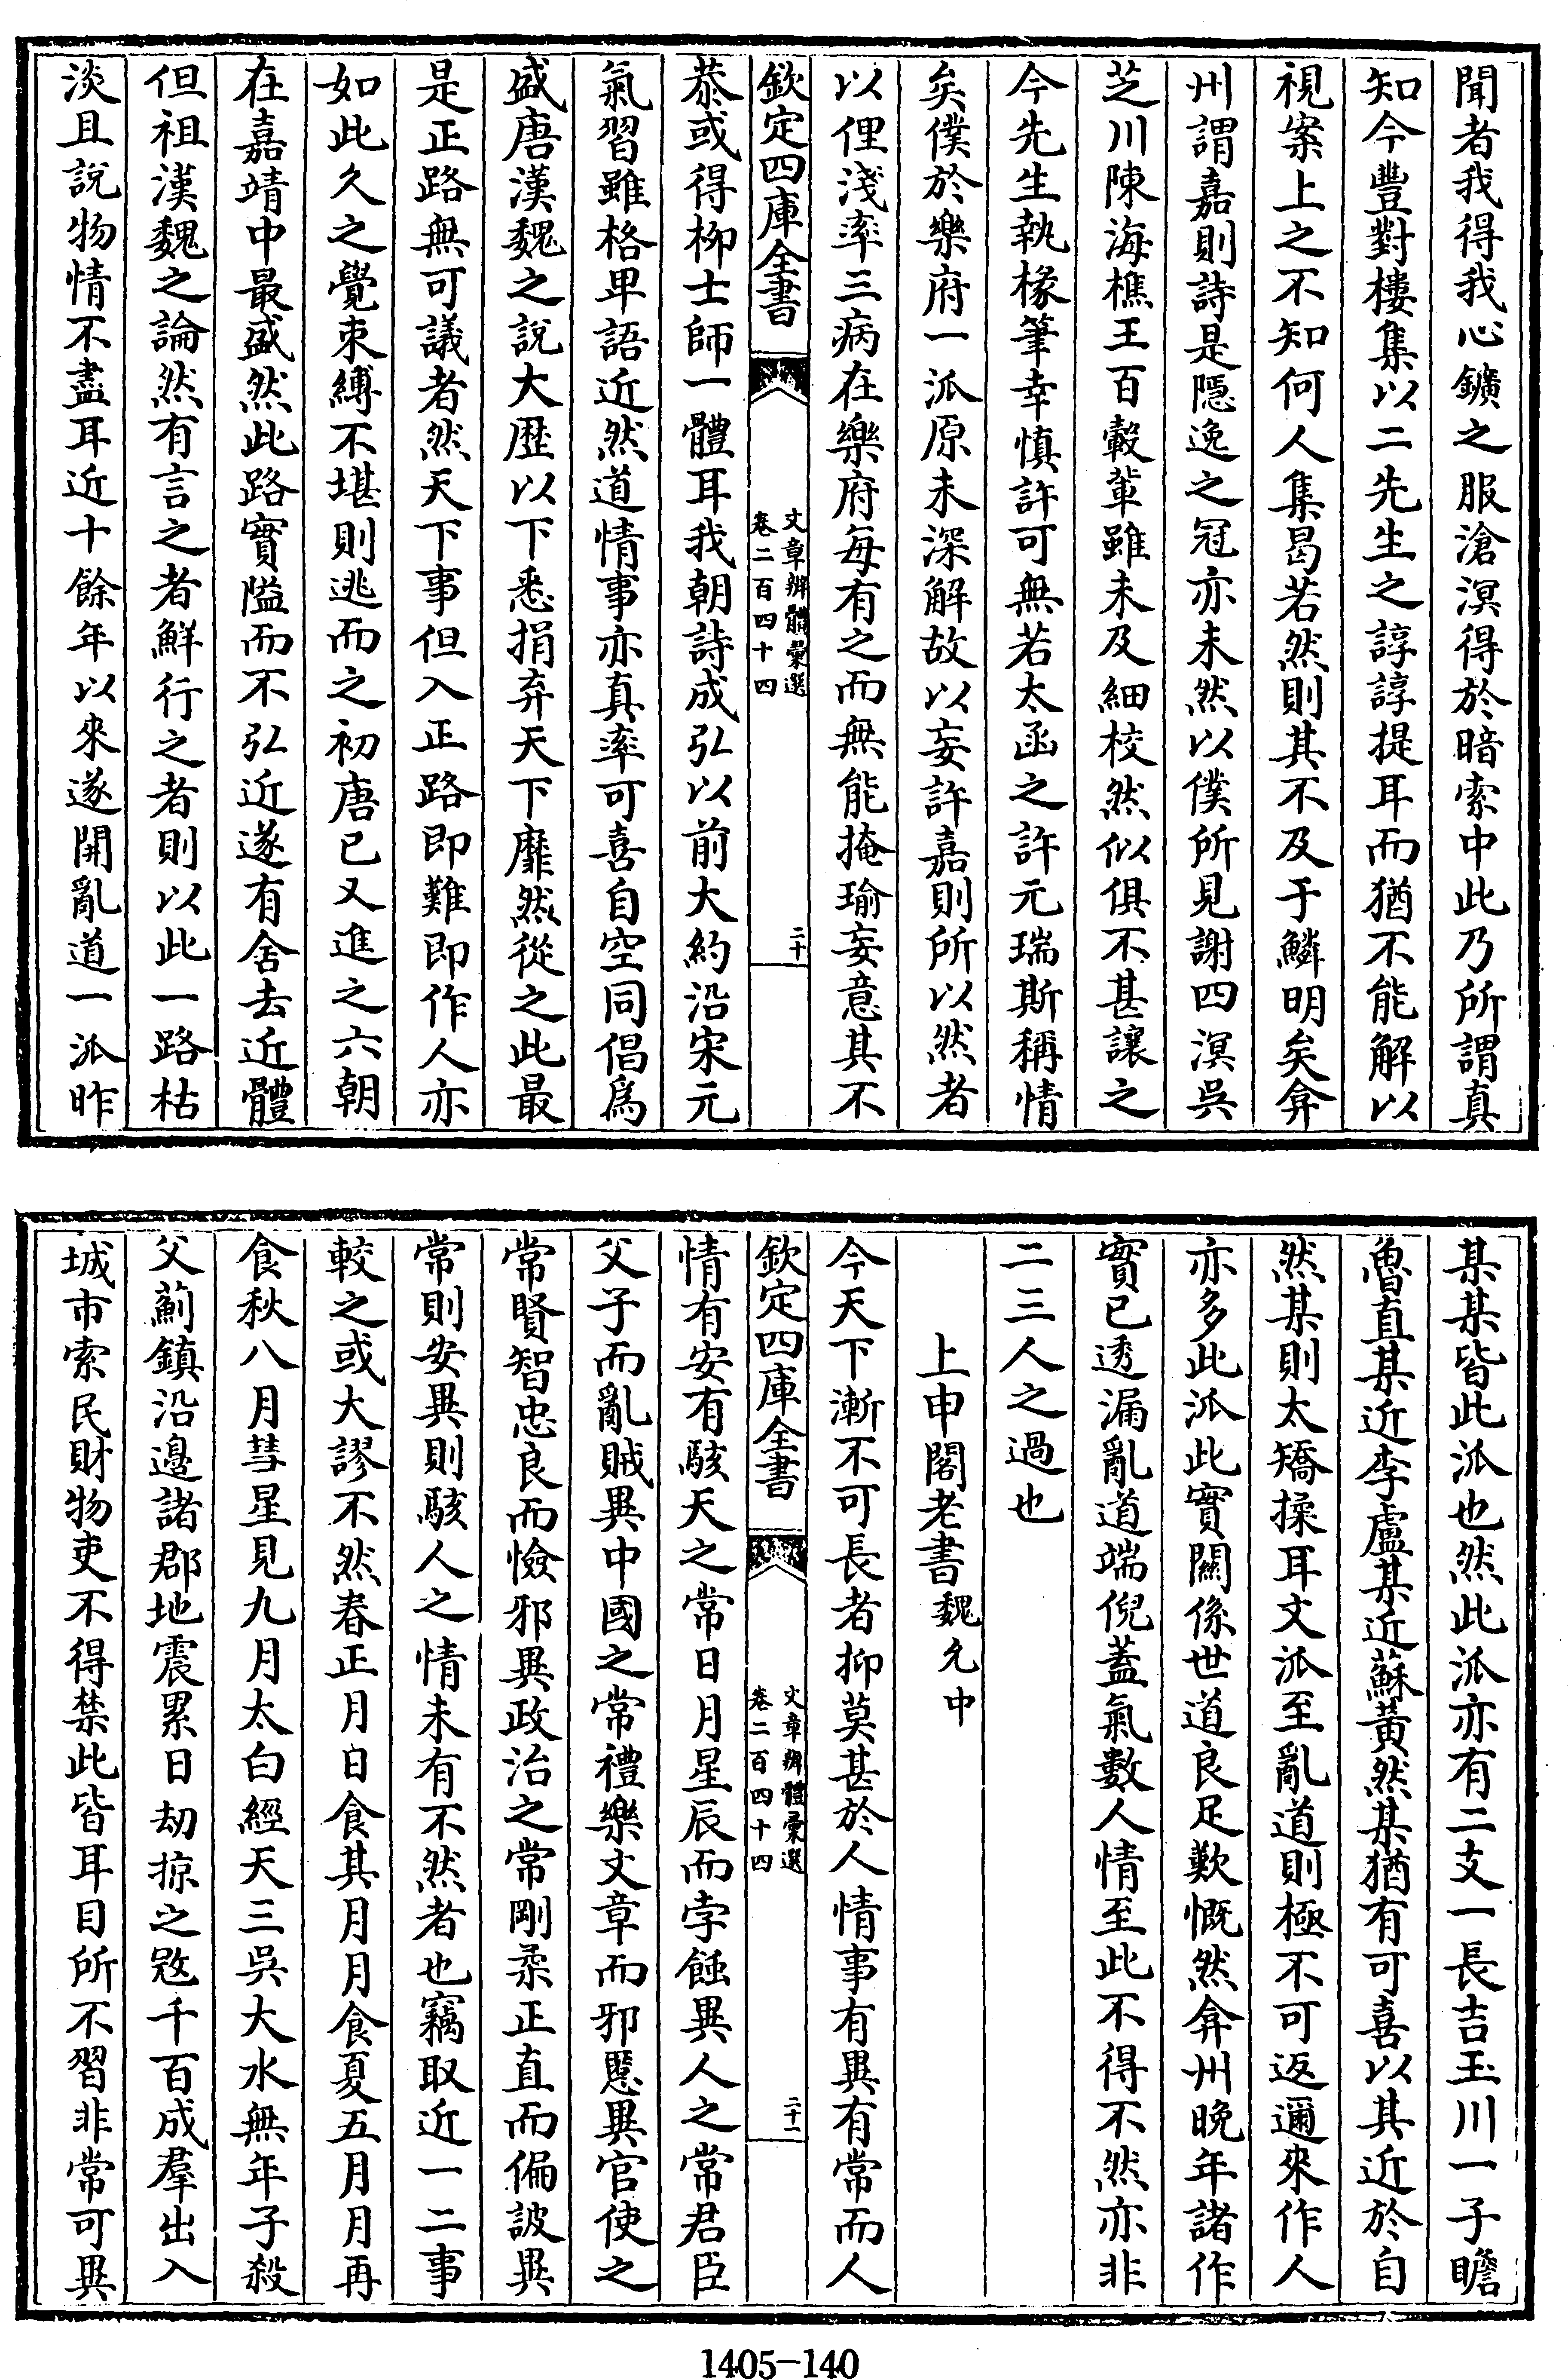 聞者我得我心鑛之服滄溟得於暗索中此乃所謂真
知今豐對樓集以二先生之諄諄提耳而猶不能解以
視案上之不知何人集曷若然則其不及于鱗明矣弇
州謂嘉則詩是隱逸之冠亦未然以僕所見謝四溟吳
芝川陳海樵王百轂輩雖未及細校然似俱不甚讓之
今先生執椽筆幸慎許可無若太函之許元瑞斯稱情
矣僕於樂府一派原未深解故以妄許嘉則所以然者
以俚淺率三病在樂府每有之而無能掩瑜妄意其不
欽定四庫全書
文章辨體彙選
卷二百四十四
二十
恭或得柳士師一體耳我朝詩成弘以前大約沿宋元
氣習雖格卑語近然道情事亦真率可喜自空同倡為
盛唐漢魏之說大歷以下悉捐弃天下靡然從之此最
是正路無可議者然天下事但入正路即難即作人亦
如此久之覺束縛不堪則逃而之初唐已又進之六朝
在嘉靖中最盛然此路實隘而不弘近遂有舍去近體
但祖漢魏之論然有言之者鮮行之者則以此一路枯
淡且說物情不盡耳近十餘年以來遂開亂道一派昨
某某皆此派也然此派亦有二支一長吉玉川一子瞻
魯直某近李盧某近蘇黃然某猶有可喜以其近於自
然某則太矯揉耳文派至亂道則極不可返邇來作人
亦多此派此實關係世道良足歎慨然弇州晚年諸作
實已透漏亂道端倪蓋氣數人情至此不得不然亦非
二三人之過也
上申閣老書魏允中
今天下漸不可長者抑莫甚於人情事有異有常而人
欽定四庫全書
文章辨體彙選
卷二百四十四
二十一
情有安有駭天之常日月星辰而孛蝕異人之常君臣
父子而亂賊異中國之常禮樂文章而邪慝異官使之
常賢智忠良而憸邪異政治之常剛柔正直而偏詖異
常則安異則駭人之情未有不然者也竊取近一二事
較之或大謬不然春正月日食其月月食夏五月月再
食秋八月彗星見九月太白經天三吳大水無年子殺
父薊鎮沿邊諸郡地震累日劫掠之愍千百成羣出入
城市索民財物吏不得禁此皆耳目所不習非常可異
1405-140